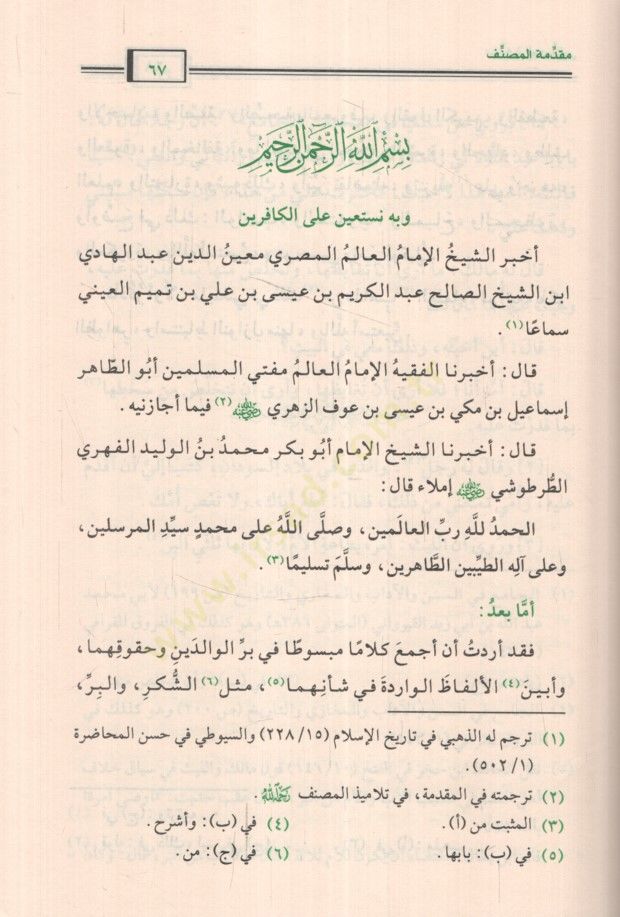 مقدِّمة المصنِّف
٦٧
بِسْمِ اللَّهِ الرَّحْمَنِ الرَّحِيمِ
وبه نستعين على الكافرين
أخبر الشيخُ الإمامُ العالمُ المصري معينُ الدين عبد الهادي
ابن الشيخ الصالح عبد الكريم بن عيسى بن علي بن تميم العيني
سماعًا(١).
قال: أخبرنا الفقيهُ الإمامُ العالمُ مفتي المسلمين أبُو الطَّاهر
إسماعيل بن مكي بن عيسى بن عوف الزهري ﷺ(٢) فيما أجازنيه.
قال: أخبرنا الشيخ الإمام أبُو بكر محمدُ بنُ الوليد الفهري
الطُّرطوشي إملاء قال:
الحمدُ للَّهِ ربِّ العالَمين، وصلَّى اللَّهُ على محمدٍ سيِّدِ المرسلين،
وعلى آلِه الطيِّبين الطَّاهرين، وسلَّمَ تسليمًا(٣).
أمَّا بعدُ:
فقد أردتُ أن أجمعَ كلامًا مبسوطًا في برِّ الوالدَينِ وحقوقِهما،
وأبينَ(٤) الألفاظَ الواردةَ في شأنِهما(٥)، مثل(٦) الشُّكرِ، والبِرِّ،
(١) ترجم له الذهبي في تاريخ الإسلام (١٥/ ٢٢٨) والسيوطي في حسن المحاضرة
(١/ ٥٠٢).
(٢) ترجمته في المقدمة، في تلاميذ المصنف رحمه الله.
(٣) المثبت من (أ). (٤) في (ب): وأشرح.
(٥) في (ب): بابها. (٦) في (ج): من.